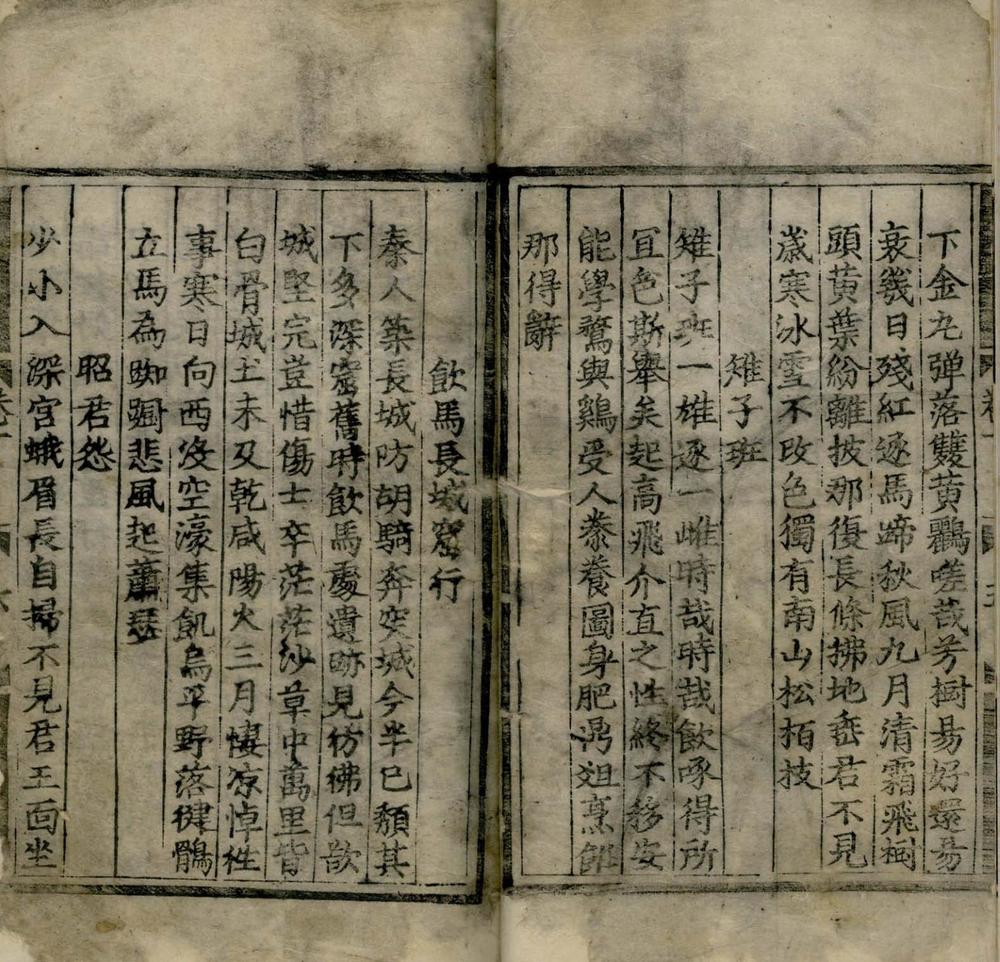 下金丸弹落雙黃鸝嗟哉芳樹易好還易
衰幾日殘紅逐馬蹄秋風九月清霜飛樹
頭黃葉紛離披那復長條拂地垂君不見
歲寒冰雪不改色獨有南山松栢技
雉子班
雉子班一雄逐一雌時哉時哉飮啄得所
冝色斯舉矣起高飛介直之性終不移安
能學鶩與鷄受人豢養圖身肥禍爼烹鮓
那得辭
飮馬長城窟行
秦人築長城防胡騎奔突城今半已頹其
下多深窟舊時飮馬處遺跡見彷彿但歆
城堅完豈惜傷士卒茫茫沙草中萬里皆
白骨城土未及乾咸陽火三月悽凉悼徃
事寒日向西沒空濠集飢烏平野落健鶻
立馬為踟躕悲風起蕭瑟
昭君怨
少小入深宮蛾眉長自掃不見君王面坐